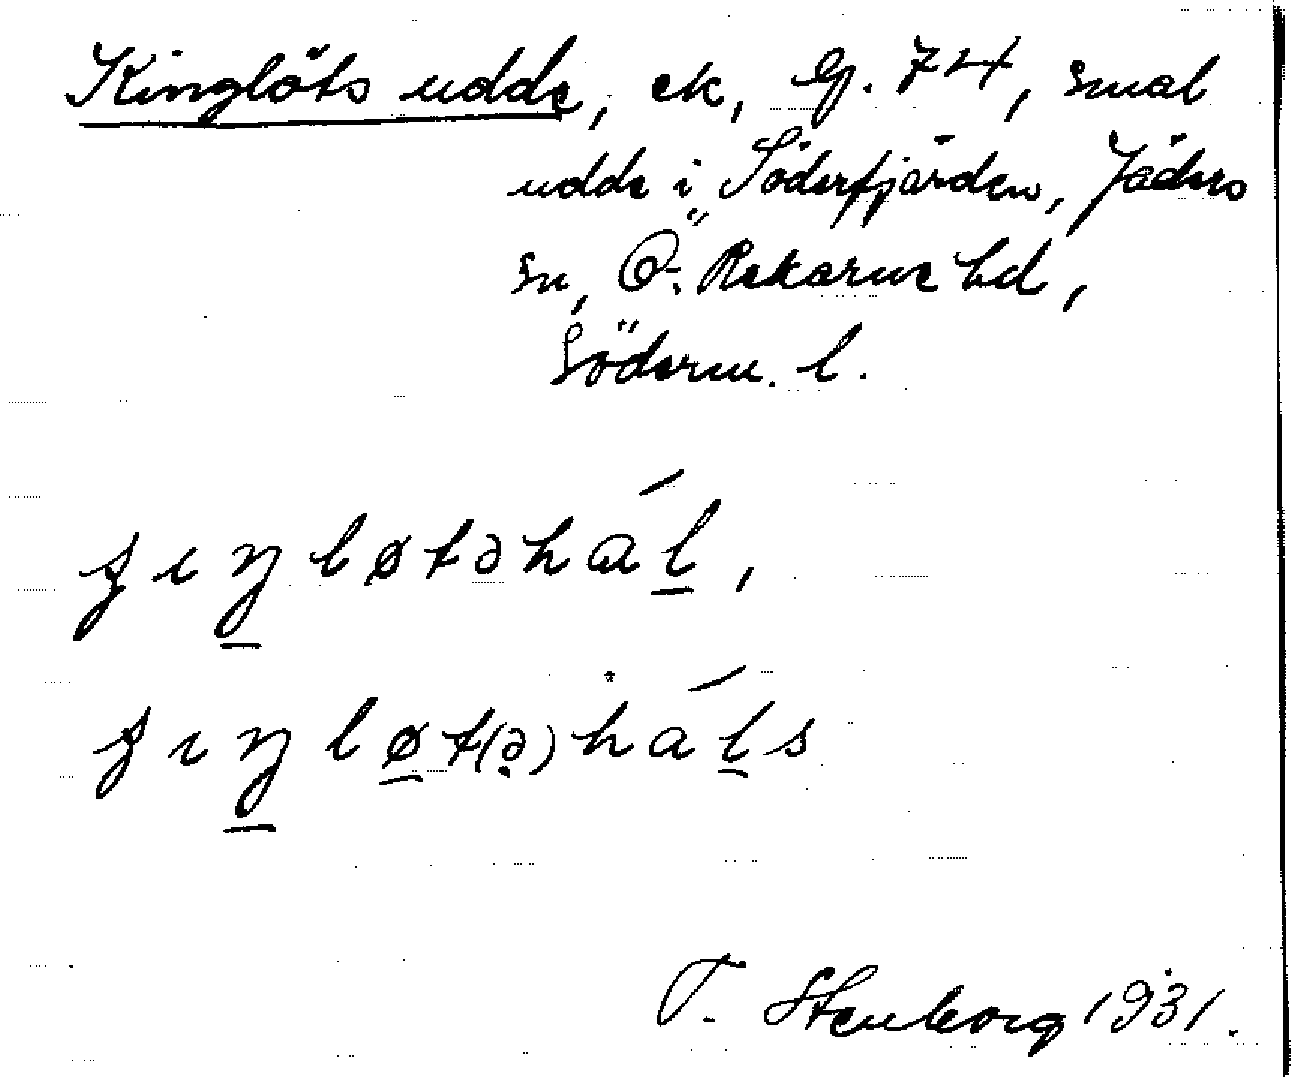 Kinglöts udde, ek, Gj. 74, smal
udde i Söderfjärden, Jäders
sn, Ö. Rekarne hd,
Söderm. l.
ʝıŋløtəhaĺ,
ʝıŋløt(ə)haĺs
T. Stenborg 1931.